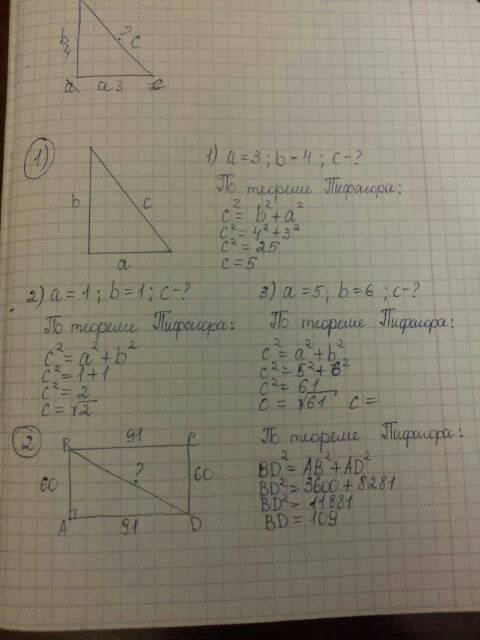 b
4
? c
a 3
1)
b
c
a
1) a=3; b-4; c-?
По теореме Пифагора:
c² = b² + a²
c² = 4² + 3²
c² = 25
c = 5
2) a=1; b=1; c-?
По теореме Пифагора:
c² = a² + b²
c² = 1+1
c² = 2
c = √2
3) a=5; b=6; c-?
По теореме Пифагора:
c² = a² + b²
c² = 5² + 6²
c² = 61
c = √61 c =
2
B 91 C
60 ? 60
A 91 D
По теореме Пифагора:
BD² = AB² + AD²
BD² = 3600 + 8281
BD² = 11881
BD = 109